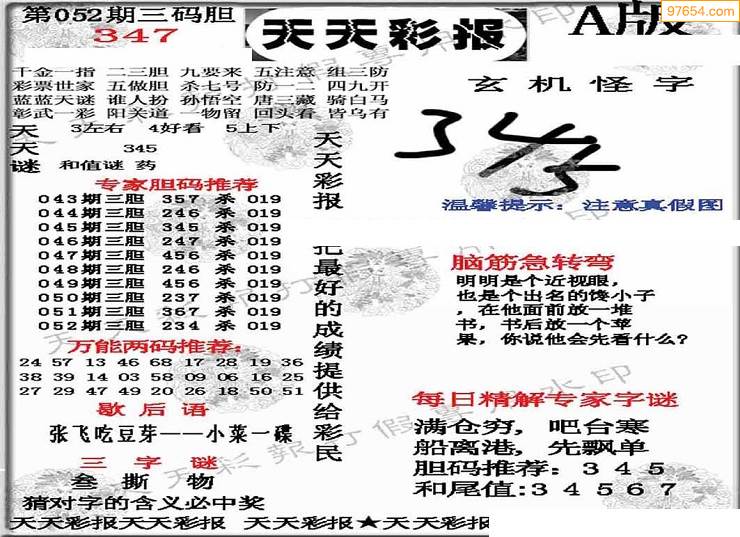 第052期三码胆
347
天天彩报
A版
97654.com
千金一指 二三胆 九要来 五注意 组三防
彩票世家 五做胆 杀七号 防一二 四九开
蓝蓝天谜 谁人扮 孙悟空 唐三藏 骑白马
彰武一彩 阳关道 一物留 回头看 皆乌有
天天谜
3左右 4好看 5上下
345
和值谜 药
专家胆码推荐
043期三胆 357 杀 019
044期三胆 246 杀 019
045期三胆 345 杀 019
046期三胆 247 杀 019
047期三胆 456 杀 019
048期三胆 246 杀 019
049期三胆 456 杀 019
050期三胆 237 杀 019
051期三胆 367 杀 019
052期三胆 234 杀 019
万能两码推荐：
24 57 13 46 68 17 28 19 36
38 39 14 03 58 09 06 16 25
27 29 47 49 20 26 18 50 51
歇后语
张飞吃豆芽——小菜一碟
三字谜
叁 撕 物
猜对字的含义必中奖
天天彩报
把最好的成绩提供给彩民
玄机怪字
345
温馨提示：注意真假图
脑筋急转弯
明明是个近视眼，
也是个出名的馋小子
，在他面前放一堆
书，书后放一个苹
果，你说他会先看什么？
每日精解专家字谜
满仓穷，吧台寒
船离港，先飘单
胆码推荐：345
和尾值:34567
天天彩报天天彩报 天天彩报★天天彩报